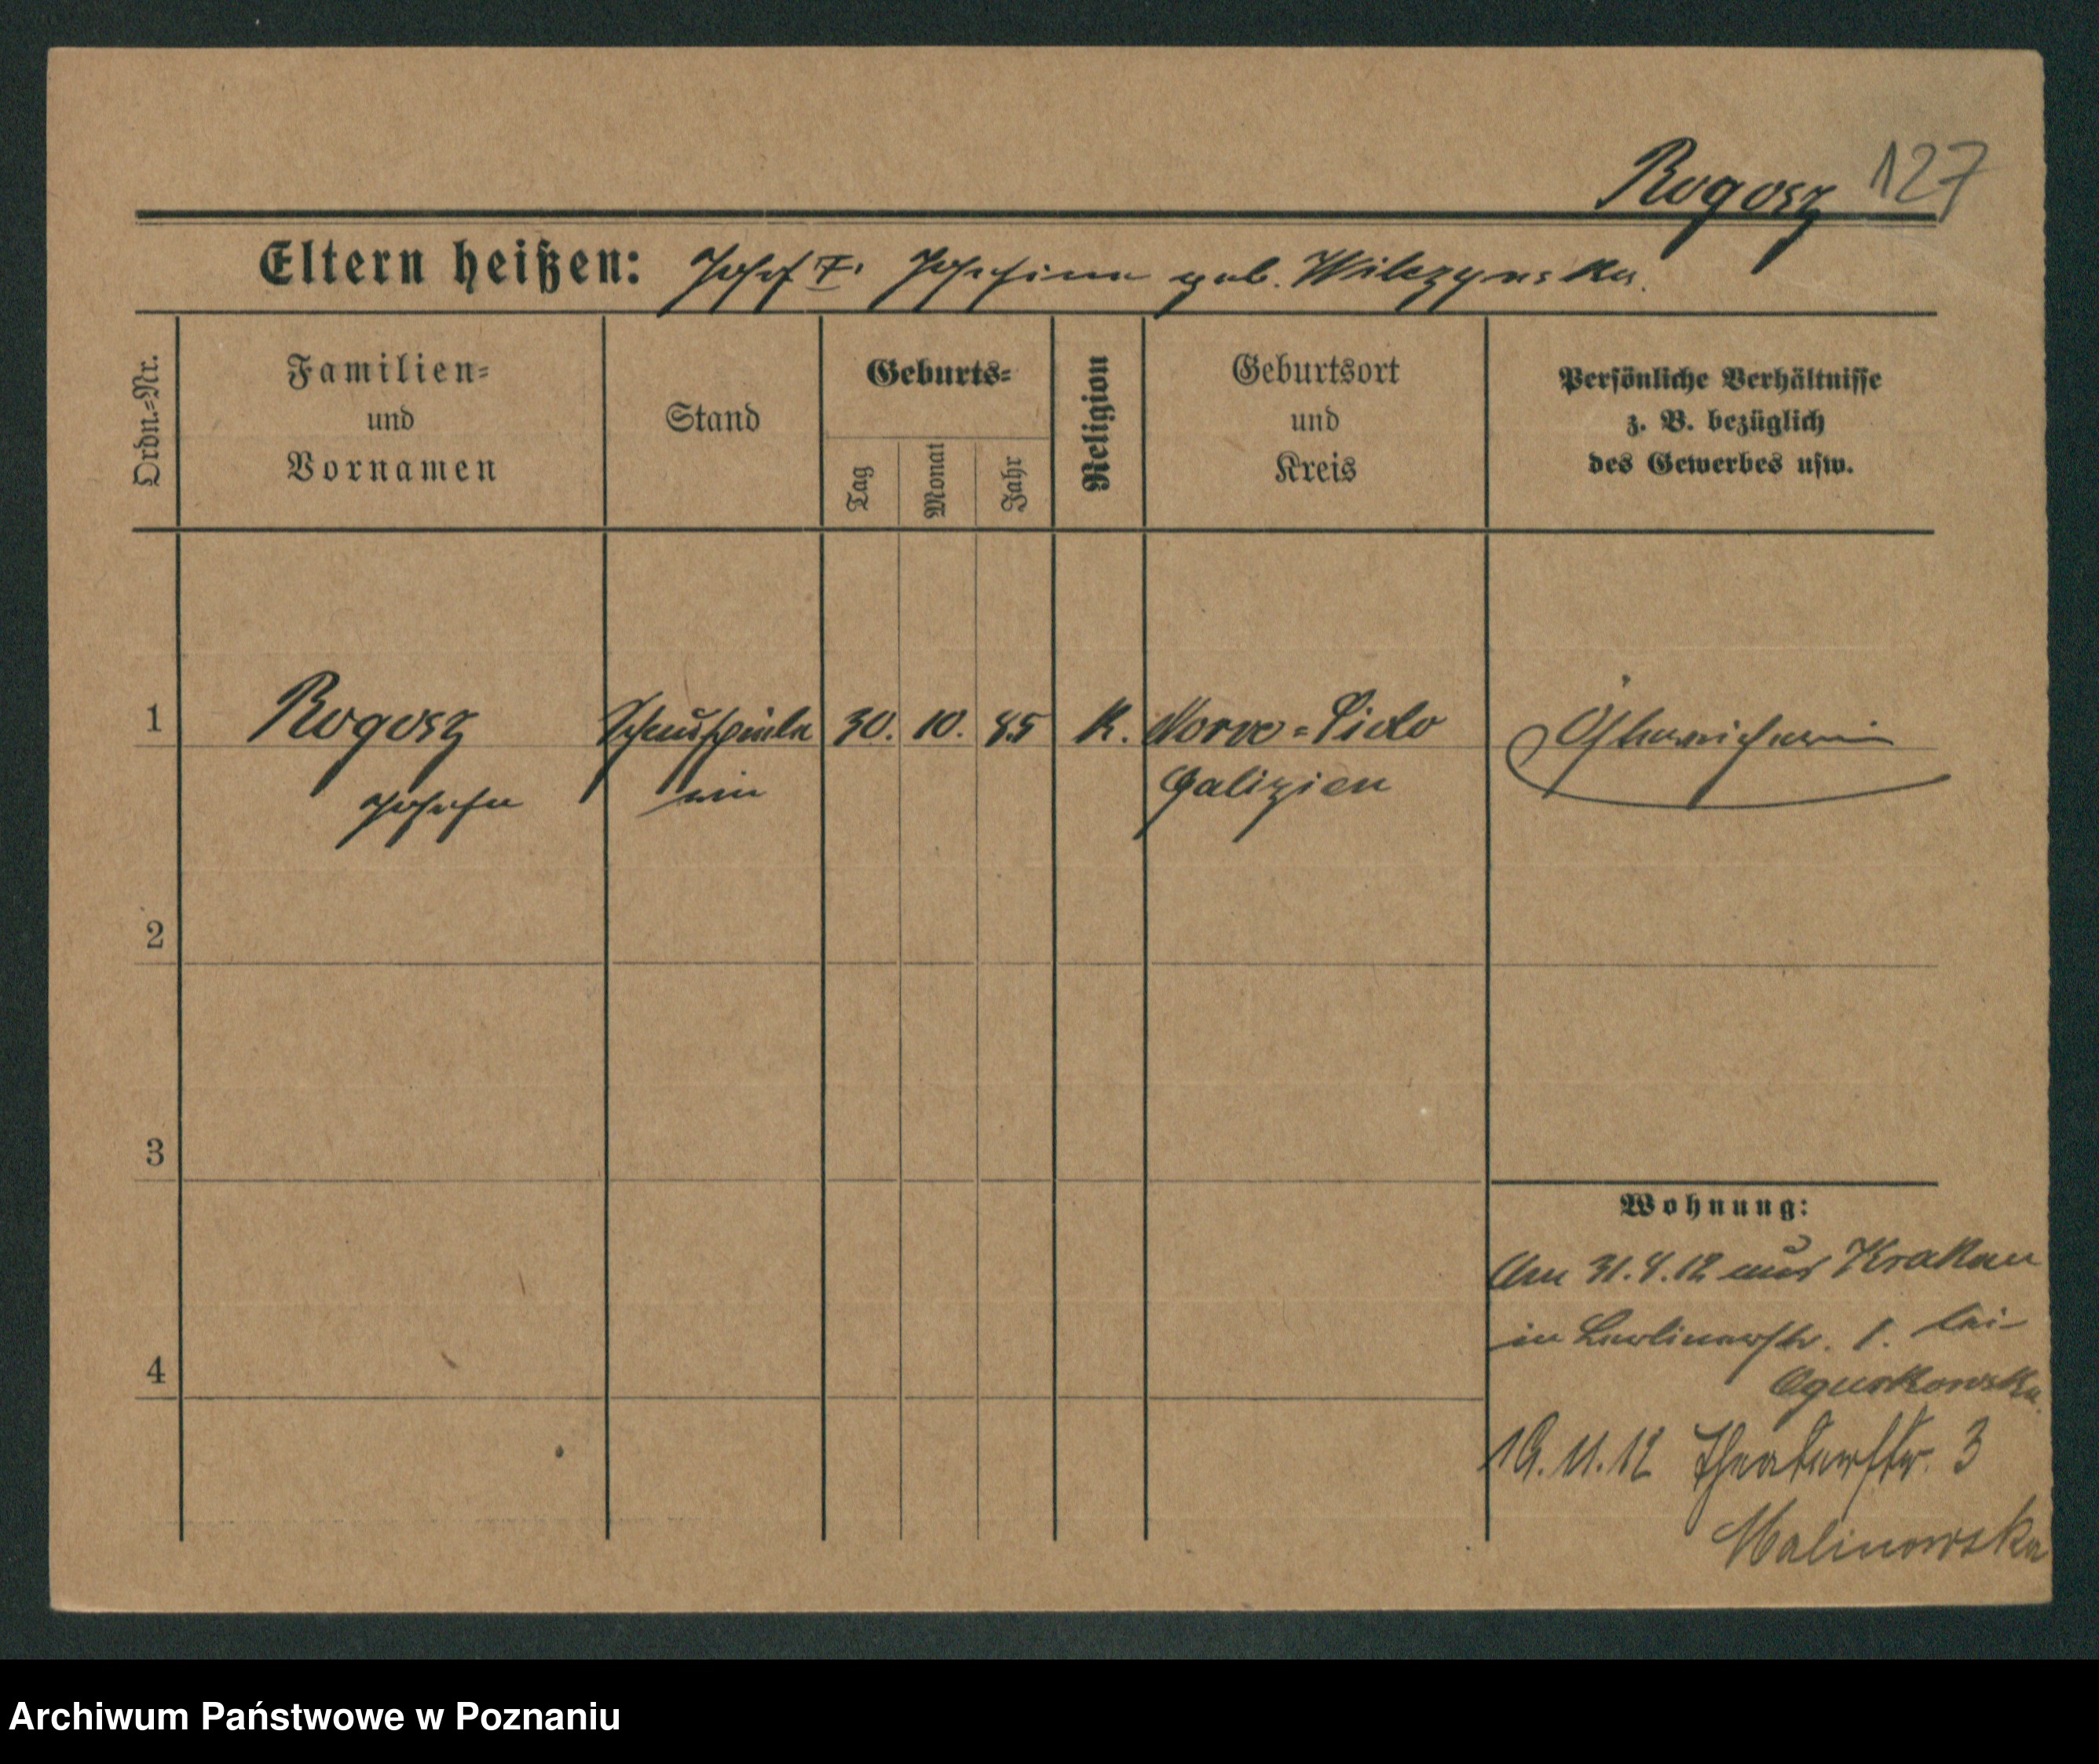 Rogosz 127
Eltern heißen: Josef †. Josefina geb. Wilczynska.
Ordn.=Nr.
Familien=
und
Vornamen
Stand
Geburts=
Tag
Monat
Jahr
Religion
Geburtsort
und
Kreis
Persönliche Verhältnisse
z. B. bezüglich
des Gewerbes usw.
1 Rogosz Schauspieler 30. 10. 85 K.
Josefa in Galizien
Österreicherin
2
3
Wohnung:
31.8.12 aus Krakau
in Berlinerstr. 1. bei
4
19.11.12 Theaterstr. 3
Malinowska
Archiwum Państwowe w Poznaniu